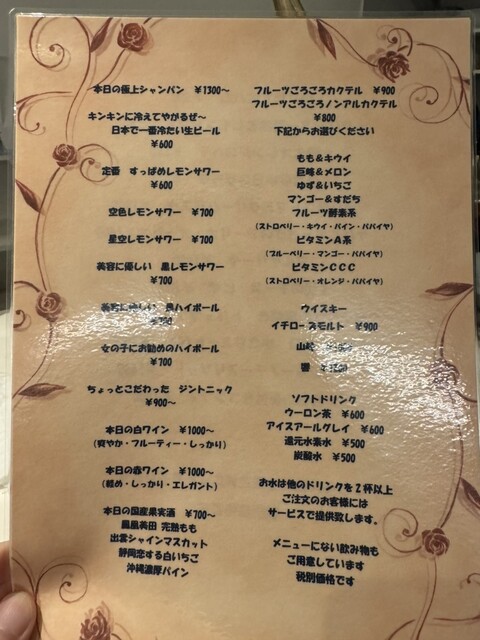 本日の極上シャンパン ¥1300〜
キンキンに冷えてやがるぜ〜
日本で一番冷たい生ビール
¥600
定番 すっぱめレモンサワー
¥600
空色レモンサワー ¥700
星空レモンサワー ¥700
美容に優しい 黒レモンサワー
¥700
ハイボール
女の子にお勧めのハイボール
¥700
ちょっとこだわった ジントニック
¥900〜
本日の白ワイン ¥1000〜
(爽やか・フルーティー・しっかり)
本日の赤ワイン ¥1000〜
(軽め・しっかり・エレガント)
本日の国産果実酒 ¥700〜
鳳凰美田 完熟もも
出雲シャインマスカット
静岡恋する白いちご
沖縄濃厚パイン
フルーツごろごろカクテル ¥900
フルーツごろごろノンアルカクテル
¥800
下記からお選びください
もも&キウイ
巨峰&メロン
ゆず&いちご
マンゴー&すだち
フルーツ酵素系
(ストロベリー・キウイ・パイン・パパイヤ)
ビタミンA系
(ブルーベリー・マンゴー・パパイヤ)
ビタミンCCC
(ストロベリー・オレンジ・パパイヤ)
ウイスキー
イチローズモルト ¥900
山崎
響
ソフトドリンク
ウーロン茶 ¥600
アイスアールグレイ ¥600
還元水素水 ¥500
炭酸水 ¥500
お水は他のドリンクを2杯以上
ご注文のお客様には
サービスで提供致します。
メニューにない飲み物も
ご用意しています
税別価格です